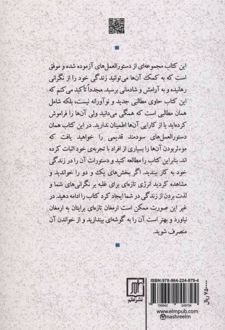 این کتاب مجموعه‌ای از دستورالعمل‌های آزموده شده و موفق
است که به کمک آن‌ها می‌توانید زندگی خود را از نگرانی
رهانیده و به آرامش و شادمانی برسید. مجدداً تأکید می‌کنم که
این کتاب حاوی مطالبی جدید و نوآورانه نیست، بلکه شامل
همان مطالبی است که همگی می‌دانید ولی آن‌ها را فراموش
کرده‌اید یا از کارآیی آن‌ها اطمینان ندارید. در این کتاب همان
دستورالعمل‌های سودمند قدیمی را خواهید یافت که
مؤثر بودن آن‌ها را بسیاری از افراد با تجربه‌ی خود اثبات کرده
اند، بنابراین کتاب را مطالعه کنید و دستورات آن را در زندگی
خود به کار ببندید. اگر بخش‌های یک و دو را خواندید و
مشاهده کردید انرژی تازه‌ای برای غلبه بر نگرانی‌های شما و
لذت بردن از زندگی در شما ایجاد کرد کتاب را ادامه دهید. در
غیر این صورت ممکن است ارمغان تازه‌ای برایتان به ارمغان
نیاورد و بهتر است آن را به گوشه‌ای بیندازید و از خواندن آن
منصرف شوید.
ISBN: 978-964-224-979-4
نشر علم
www.elmpub.com
nashreelm